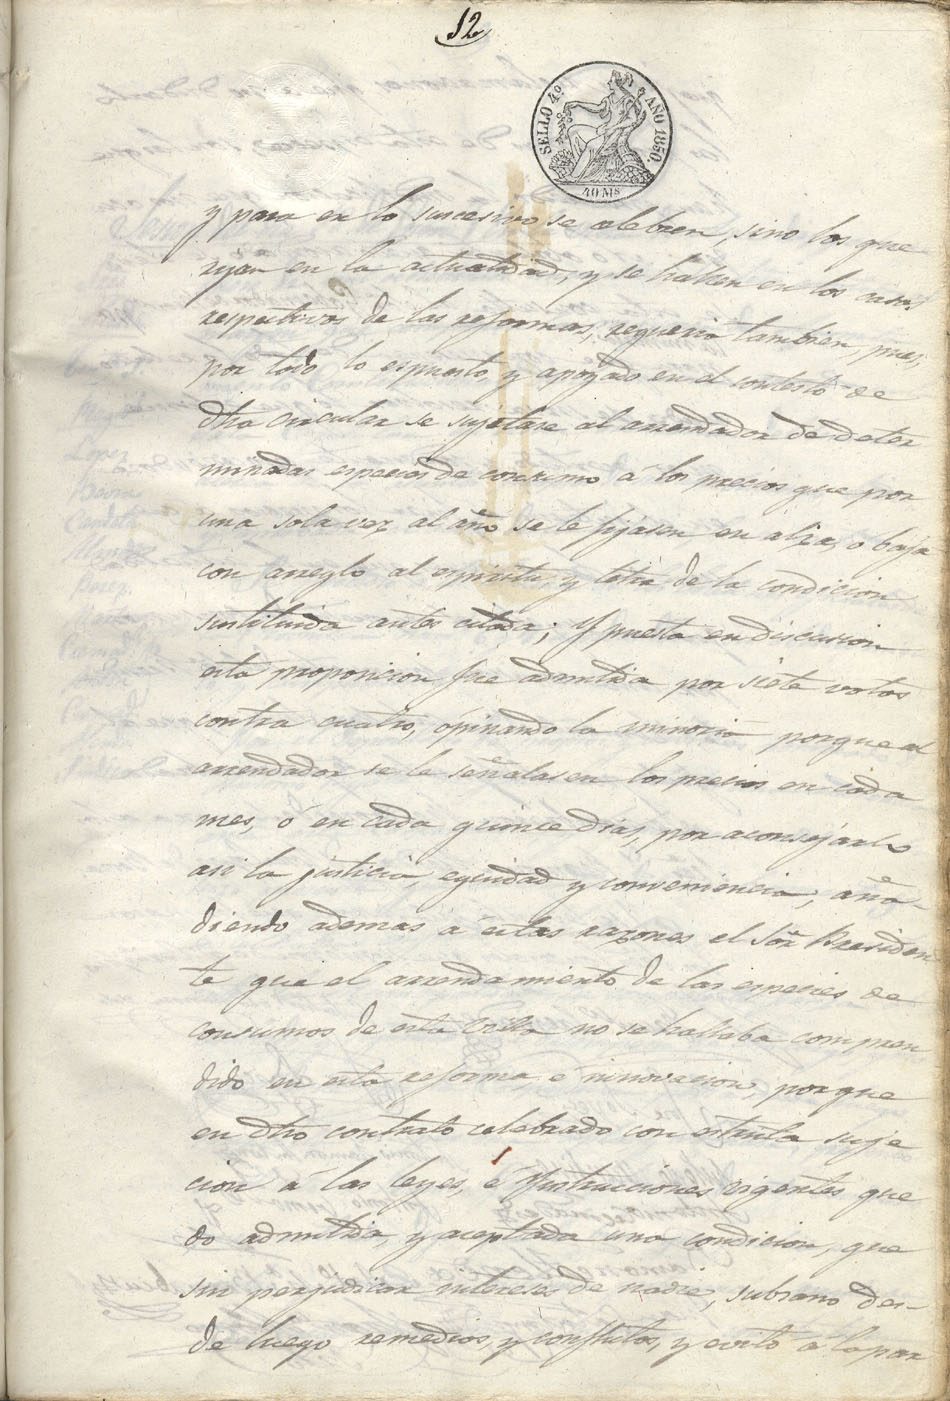 12
SELLO 4º AÑO 1850.
40 Ms
y para en lo succesivo se celebren, sino los que
rijan en la actualidad, y se hallen en los casos
respectivos de las reformas, requeria tambien, pues,
por todo lo espuesto, y apoyado en el contesto de
dha circular se sujetase al arrendador de deter
minadas especies de consumo á los precios que por
una sola vez al año se le fijasen en alza, o baja
con arreglo al espiritu y letra de la condicion
sustituida antes citada; Y puesta en discusion
esta proposicion fue admitida por siete votos
contra cuatro, opinando la minoria porque al
arrendador se le señalasen los precios en cada
mes, ó en cada quince dias, por aconsejarlo
asi la justicia, equidad y conveniencia, aña-
diendo ademas á estas razones el Sõr Presiden
te que el arrendamiento de las especies de
consumos de esta Villa no se hallaba compren
dido en esta reforma é innovacion, porque
en dho contrato celebrado con estricta suje
cion á las leyes, é Ynstrucciones vigentes que
do admitida, y aceptada una condicion, que
sin perjudicar intereses de nadie, subsano des-
de luego remedios, y conflictos, y evitó á la par